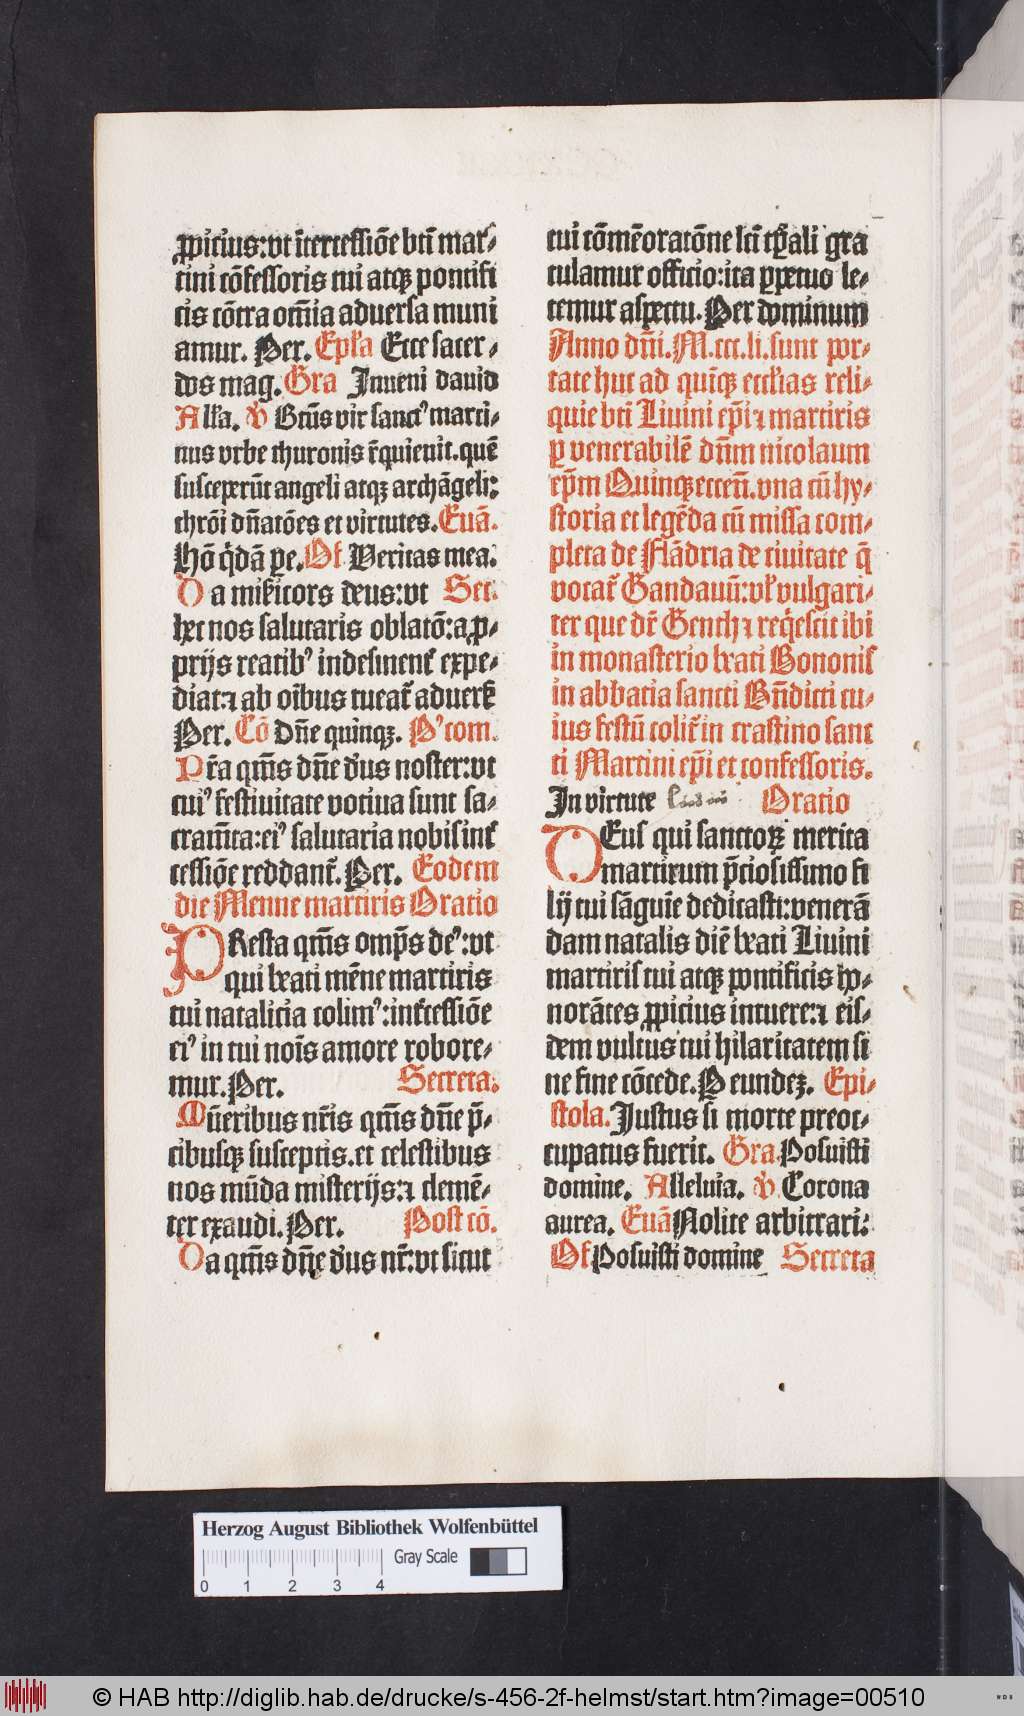 ꝓpicius:vt ītercessiōe bt̄i mar⸗
tini cōfessoris tui atqꝫ pontifi
cis cōtra om̄ia aduersa muni
amur. Per. Epl̄a Ecce sacer⸗
dos mag. Gra Inueni dauid
All'a. v̇ Bt̄us vir sanctꝰ marti⸗
nus vrbe thuronis r̄quieuit. quē
susceperūt angeli atqꝫ archāgeli:
thrōi dn̄atōes et virtutes. Euā.
Hō q̇dā ꝑe. Of Veritas mea.
Da mis̄icors deus: vt Sec.
hec nos salutaris oblatō: a ꝓ⸗
prijs reatibꝰ indesinent̄ expe⸗
diat: ⁊ ab oībus tueat̄ aduers̄
Per. Cō Dn̄e quinqꝫ. Pꝰcom.
Pr̄a qm̄s dn̄e d'us noster: vt
cuiꝰ festiuitate votiua sunt sa⸗
cram̄ta: eiꝰ salutaria nobis int̄
cessiōe reddant̄. Per. Eodem
die Menne martiris Oratio
PResta qm̄s omp̄s deꝰ: vt
qui beati mēne martiris
tui natalicia colimꝰ: int̄cessiōe
eiꝰ in tui noīs amore robore⸗
mur. Per. Secreta.
Mūeribus nr̄is qm̄s dn̄e p̄⸗
cibusqꝫ susceptis. et celestibus
nos mūda misterijs: ⁊ clemē⸗
ter exaudi. Per. Post cō.
Da qm̄s dn̄e d'us nr̄: vt sicut
tui cōmēoratōne sc̄i tꝑali gra
tulamur officio: ita ꝑpetuo le⸗
temur aspectu. Per dominum
Anno dn̄i. M. ccc. li. sunt por⸗
tate huc ad quīqꝫ eccl'ias reli⸗
quie bt̄i Liuini ep̄i ⁊ martiris
ꝑ venerabilē dn̄m nicolaum
ep̄m Quinqꝫeccen̄. vna cū hy⸗
storia et legēda cū missa com⸗
pleta de Flādria de ciuitate q̄
vocat̄ Gandauū: vl' vulgari⸗
ter que dr̄ Genth ⁊ req̇escit ibi
in monasterio beati Bononis
in abbatia sancti Bn̄dicti cu⸗
ius festū colit̄ in crastino sanc
ti Martini ep̄i et confessoris.
In virtute Oratio
DEus qui sanctoꝝ merita
martirum p̄ciosissimo fi
lij tui sāguīe dedicasti: venerā
dam natalis diē beati Liuini
martiris tui atqꝫ pontificis ho⸗
norātes ꝓpicius intuere: ⁊ eis⸗
dem vultus tui hilaritatem si
ne fine cōcede. P eundeꝫ. Epi⸗
stola. Iustus si morte preoc⸗
cupatus fuerit. Gra. Posuisti
domine. Alleluia. v̇ Corona
aurea. Euā Nolite arbitrari:
Of Posuisti domine Secreta
Herzog August Bibliothek Wolfenbüttel
Gray Scale
0 1 2 3 4
© HAB http://diglib.hab.de/drucke/s-456-2f-helmst/start.htm?image=00510